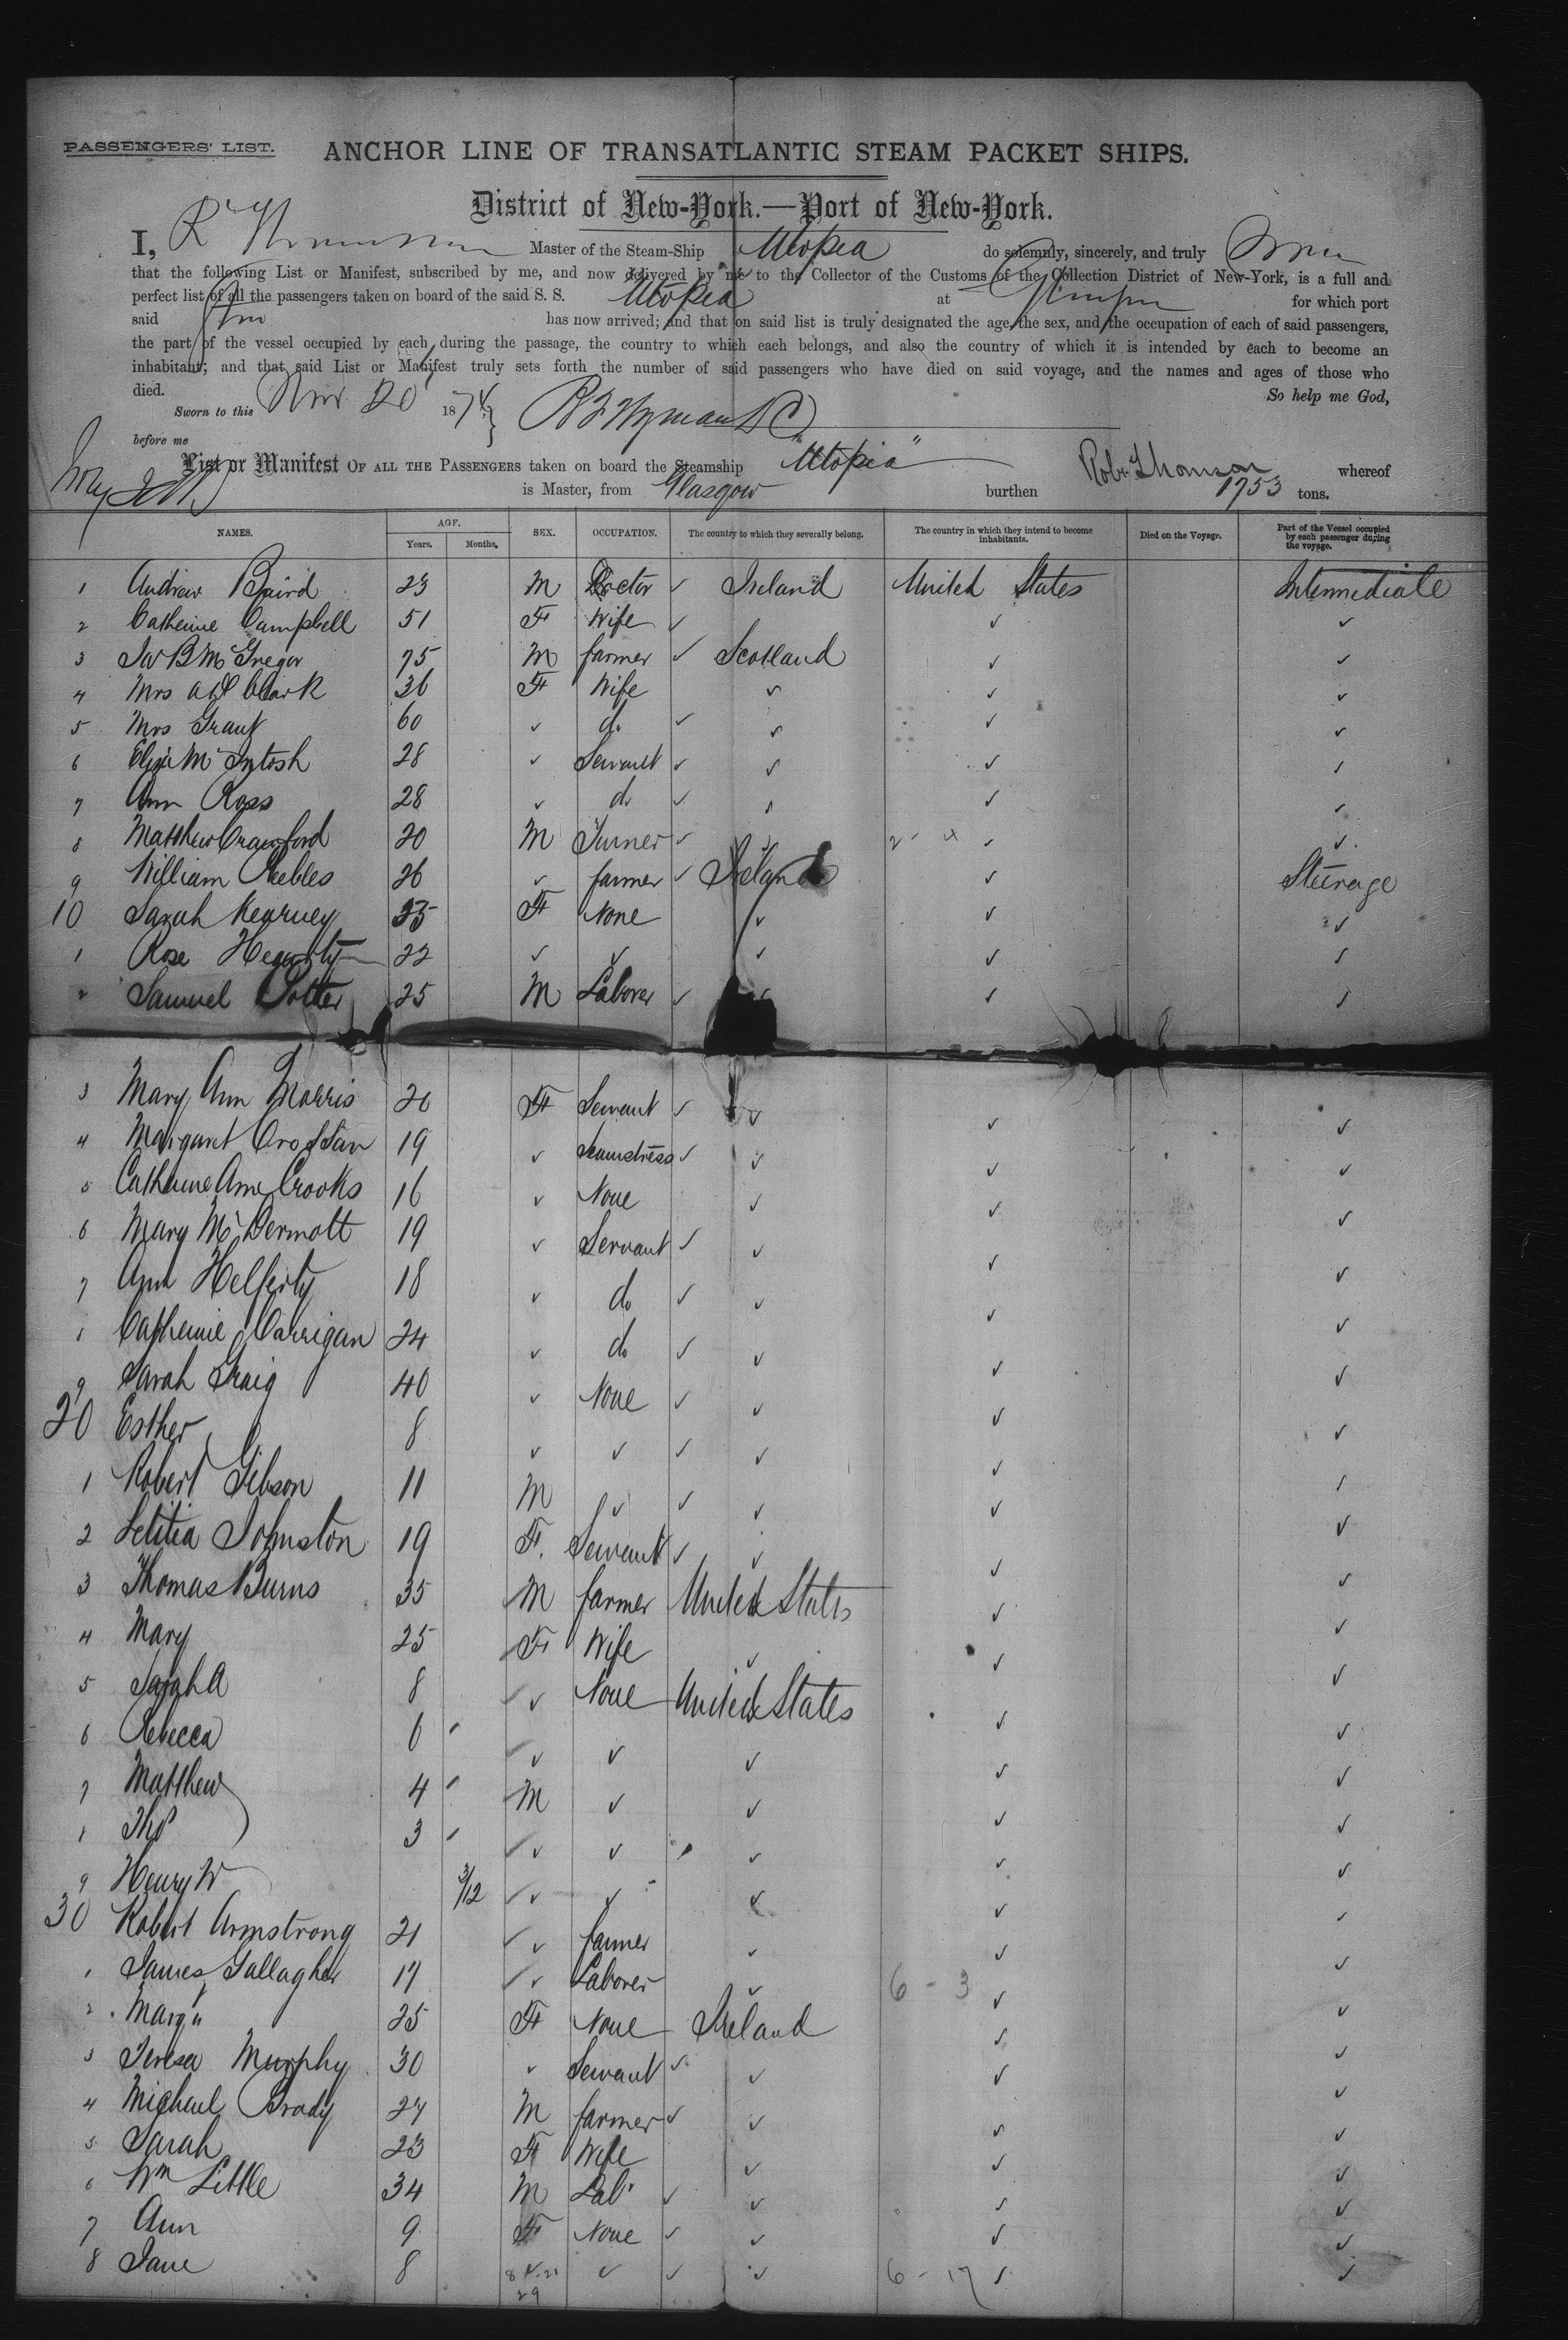 PASSENGERS' LIST.
ANCHOR LINE OF TRANSATLANTIC STEAM PACKET SHIPS.
District of New-York.—Port of New-York.
I, R Thomson Master of the Steam-Ship Utopia do solemnly, sincerely, and truly
that the following List or Manifest, subscribed by me, and now delivered by me to the Collector of the Customs of the Collection District of New-York, is a full and
perfect list of all the passengers taken on board of the said S. S. Utopia at for which port
said has now arrived; and that on said list is truly designated the age, the sex, and the occupation of each of said passengers,
the part of the vessel occupied by each during the passage, the country to which each belongs, and also the country of which it is intended by each to become an
inhabitant; and that said List or Manifest truly sets forth the number of said passengers who have died on said voyage, and the names and ages of those who
died. So help me God,
Sworn to this 20 1874
before me
List or Manifest OF ALL THE PASSENGERS taken on board the Steamship "Utopia" Robt Thomson whereof
is Master, from Glasgow burthen 1753 tons.
NAMES. AGE. Years. Months. SEX. OCCUPATION. The country to which they severally belong. The country in which they intend to become inhabitants. Died on the Voyage. Part of the Vessel occupied by each passenger during the voyage.
1 Andrew Baird 23 M Doctor ✓ Ireland United States Intermediate
2 Catherine Campbell 51 F Wife ✓ ✓ ✓
3 Jas B McGregor 75 M farmer ✓ Scotland ✓ ✓
4 Mrs Clark 36 F Wife ✓ ✓ ✓
5 Mrs Grant 60 ✓ do ✓ ✓ ✓ ✓
6 Eliza McIntosh 28 ✓ Servant ✓ ✓ ✓ ✓
7 Ann Ross 28 ✓ do ✓ ✓ ✓ ✓
8 Matthew Crawford 20 M Turner ✓ ✓ ✓ ✓
9 William Peebles 26 ✓ farmer ✓ Ireland ✓ Steerage
10 Sarah Kearney 25 F None ✓ ✓ ✓
1 Rose Hegarty 22 ✓ ✓ ✓ ✓ ✓
2 Samuel Potter 25 M Laborer ✓ ✓ ✓ ✓
3 Mary Ann Morris 20 F Servant ✓ ✓ ✓ ✓
4 Margaret Crossan 19 ✓ Seamstress ✓ ✓ ✓ ✓
5 Catherine Ann Crooks 16 ✓ None ✓ ✓ ✓
6 Mary McDermott 19 ✓ Servant ✓ ✓ ✓ ✓
7 Ann Helferty 18 ✓ do ✓ ✓ ✓ ✓
8 Catherine Carrigan 24 ✓ do ✓ ✓ ✓ ✓
9 Sarah Graig 40 ✓ None ✓ ✓ ✓ ✓
20 Esther 8 ✓ ✓ ✓ ✓ ✓ ✓
1 Robert Gibson 11 M ✓ ✓ ✓ ✓ ✓
2 Letitia Johnston 19 F. Servant ✓ ✓ ✓ ✓
3 Thomas Burns 35 M farmer United States ✓ ✓
4 Mary 25 F Wife ✓ ✓ ✓
5 Sarah A 8 ✓ None United States ✓ ✓
6 Rebecca 6 ✓ ✓ ✓ ✓ ✓
7 Matthew 4 M ✓ ✓ ✓ ✓
8 Thos 3 ✓ ✓ ✓ ✓ ✓
9 Henry W 3/12 ✓ ✓ ✓ ✓ ✓
30 Robert Armstrong 21 ✓ farmer ✓ ✓ ✓
1 James Gallagher 17 ✓ Laborer ✓ 6 - 3 ✓ ✓
2 Marg't 25 F None Ireland ✓ ✓
3 Teresa Murphy 30 ✓ Servant ✓ ✓ ✓ ✓
4 Michael Brady 27 M farmer ✓ ✓ ✓ ✓
5 Sarah 23 F Wife ✓ ✓ ✓
6 Wm Little 34 M Labr ✓ ✓ ✓ ✓
7 Ann 9 F None ✓ ✓ ✓ ✓
8 Jane 8 ✓ ✓ ✓ 6 - 17 ✓ ✓
29